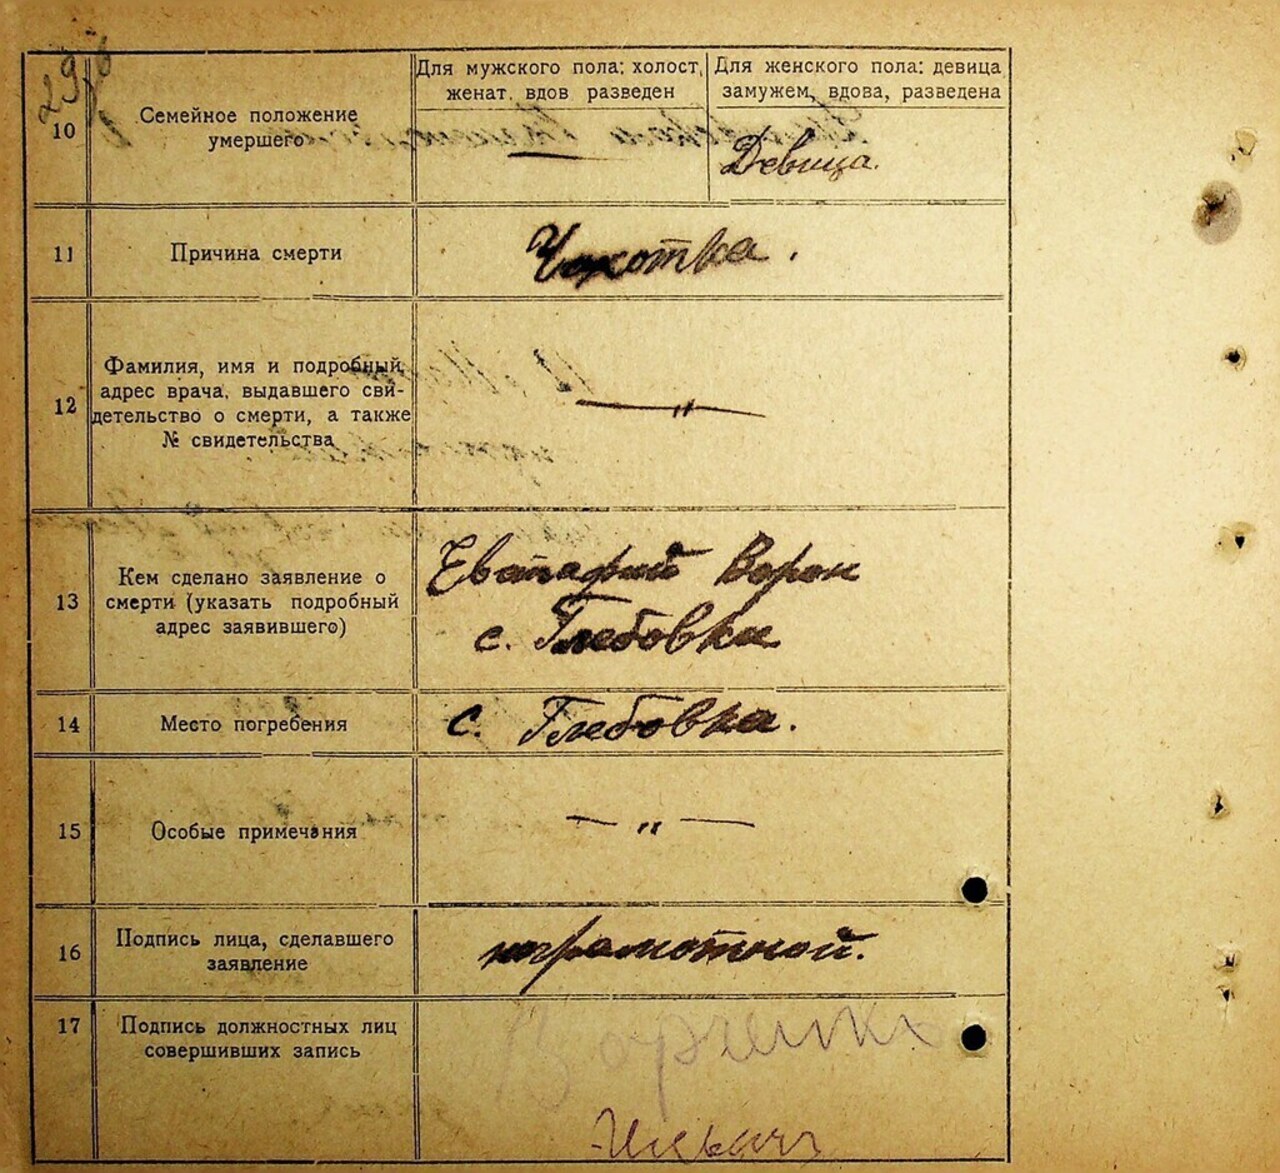 Для мужского пола: холост, женат, вдов разведен
Для женского пола: девица замужем, вдова, разведена
10
Семейное положение
умершего
—
Девица.
11
Причина смерти
Чахотка.
12
Фамилия, имя и подробный
адрес врача, выдавшего сви-
детельство о смерти, а также
№ свидетельства
— " —
13
Кем сделано заявление о
смерти (указать подробный
адрес заявившего)
Ворон
с. Глебовка
14
Место погребения
с. Глебовка.
15
Особые примечания
— " —
16
Подпись лица, сделавшего
заявление
17
Подпись должностных лиц
совершивших запись